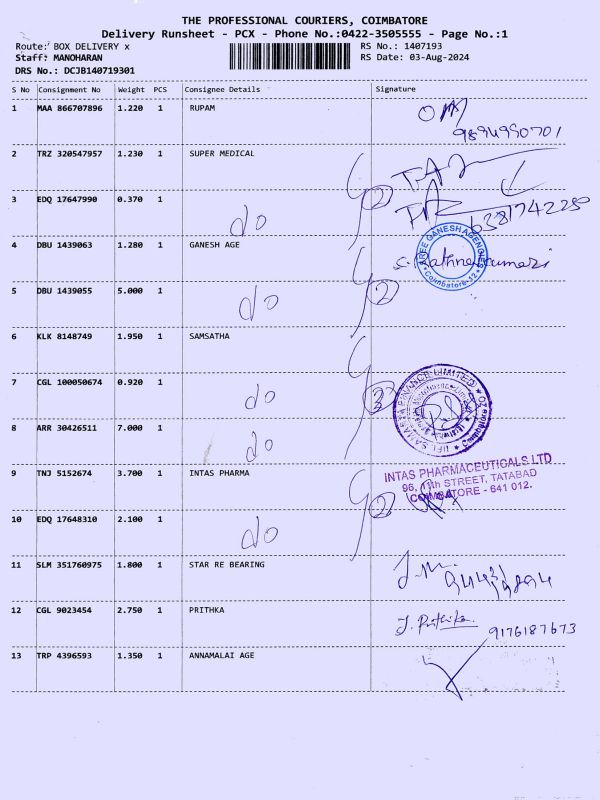 THE PROFESSIONAL COURIERS, COIMBATORE
Delivery Runsheet - PCX - Phone No.:0422-3505555 - Page No.:1
Route: BOX DELIVERY x
RS No.: 1407193
Staff: MANOHARAN
RS Date: 03-Aug-2024
DRS No.: DCJB140719301
S No Consignment No Weight PCS Consignee Details Signature
1 MAA 866707896 1.220 1 RUPAM
9894990701
2 TRZ 320547957 1.230 1 SUPER MEDICAL
3 EDQ 17647990 0.370 1 do 2
4 DBU 1439063 1.280 1 GANESH AGE
SREE GANESH AGENCIES
Coimbatore-12
5 DBU 1439055 5.000 1 do 2
6 KLK 8148749 1.950 1 SAMSATHA
7 CGL 100050674 0.920 1 do 3
8 ARR 30426511 7.000 1 do
9 TNJ 5152674 3.700 1 INTAS PHARMA
INTAS PHARMACEUTICALS LTD
96, 11th STREET, TATABAD
COIMBATORE - 641 012.
10 EDQ 17648310 2.100 1 do 2
11 SLM 351760975 1.800 1 STAR RE BEARING
12 CGL 9023454 2.750 1 PRITHKA J. Prithika
9176187673
13 TRP 4396593 1.350 1 ANNAMALAI AGE